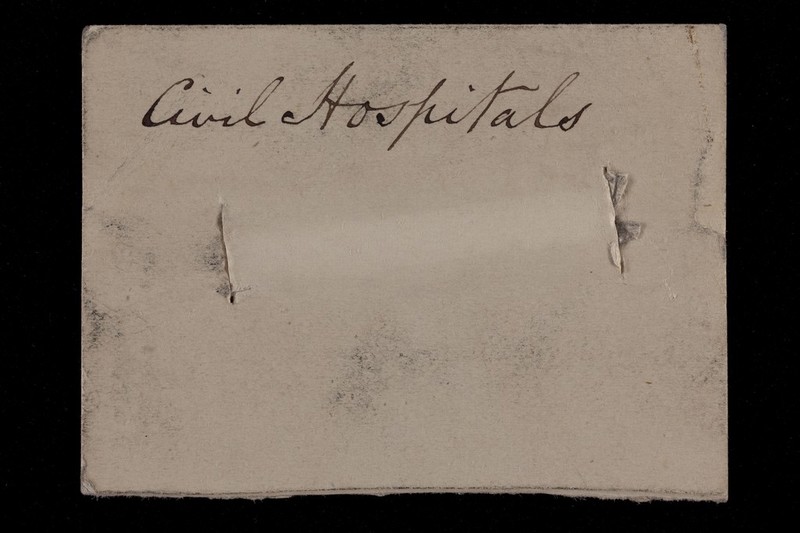 Civil Hospitals